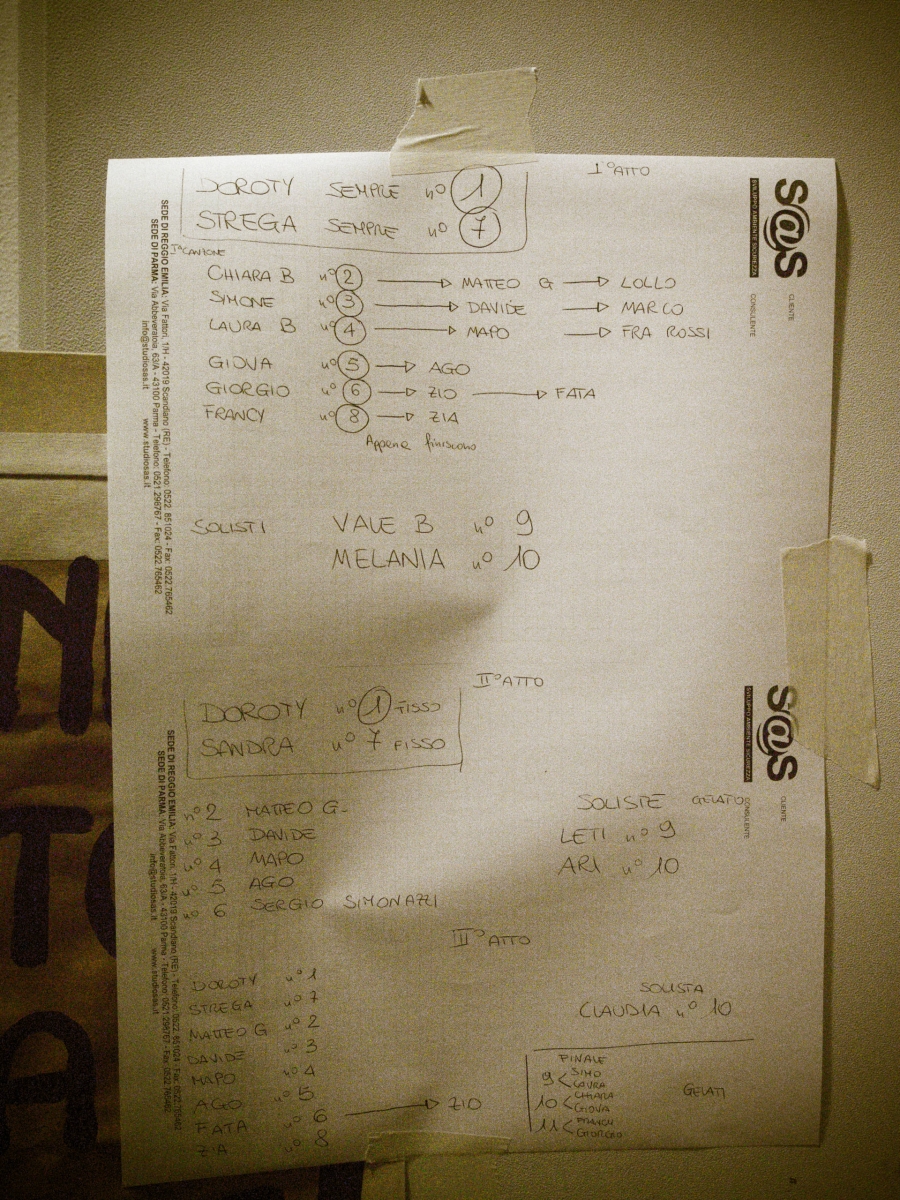 Iº ATTO
DOROTY SEMPRE nº 1
STREGA SEMPRE nº 7
Iª CANZONE
CHIARA B nº 2 → MATTEO G → LOLLO
SIMONE nº 3 → DAVIDE → MARCO
LAURA B nº 4 → MAPO → FRA ROSSI
GIOVA nº 5 → AGO
GIORGIO nº 6 → ZIO → FATA
FRANCY nº 8 → ZIA
Appena finiscono
SOLISTI VALE B nº 9
MELANIA nº 10
IIº ATTO
DOROTY nº 1 FISSO
SANDRA nº 7 FISSO
nº 2 MATTEO G.
nº 3 DAVIDE
nº 4 MAPO
nº 5 AGO
nº 6 SERGIO SIMONAZZI
SOLISTE GELATO
LETI nº 9
ARI nº 10
IIIº ATTO
DOROTY nº 1
STREGA nº 7
MATTEO G nº 2
DAVIDE nº 3
MAPO nº 4
AGO nº 5
FATA nº 6 → ZIO
ZIA nº 8
SOLISTA
CLAUDIA nº 10
FINALE
9 < SIMO
LAURA
10 < CHIARA
GIOVA
11 < FRANCY
GIORGIO
GELATI
S@S
SVILUPPO AMBIENTE SICUREZZA
CLIENTE
CONSULENTE
S@S
SVILUPPO AMBIENTE SICUREZZA
CLIENTE
CONSULENTE
SEDE DI REGGIO EMILIA: Via Fattori, 1/H - 42019 Scandiano (RE) - Telefono: 0522. 851024 - Fax: 0522.765462
SEDE DI PARMA: Via Abbeveratoia, 63/A - 43100 Parma - Telefono: 0521.298767 - Fax: 0522.765462
info@studiosas.it www.studiosas.it
SEDE DI REGGIO EMILIA: Via Fattori, 1/H - 42019 Scandiano (RE) - Telefono: 0522. 851024 - Fax: 0522.765462
SEDE DI PARMA: Via Abbeveratoia, 63/A - 43100 Parma - Telefono: 0521.298767 - Fax: 0522.765462
info@studiosas.it www.studiosas.it